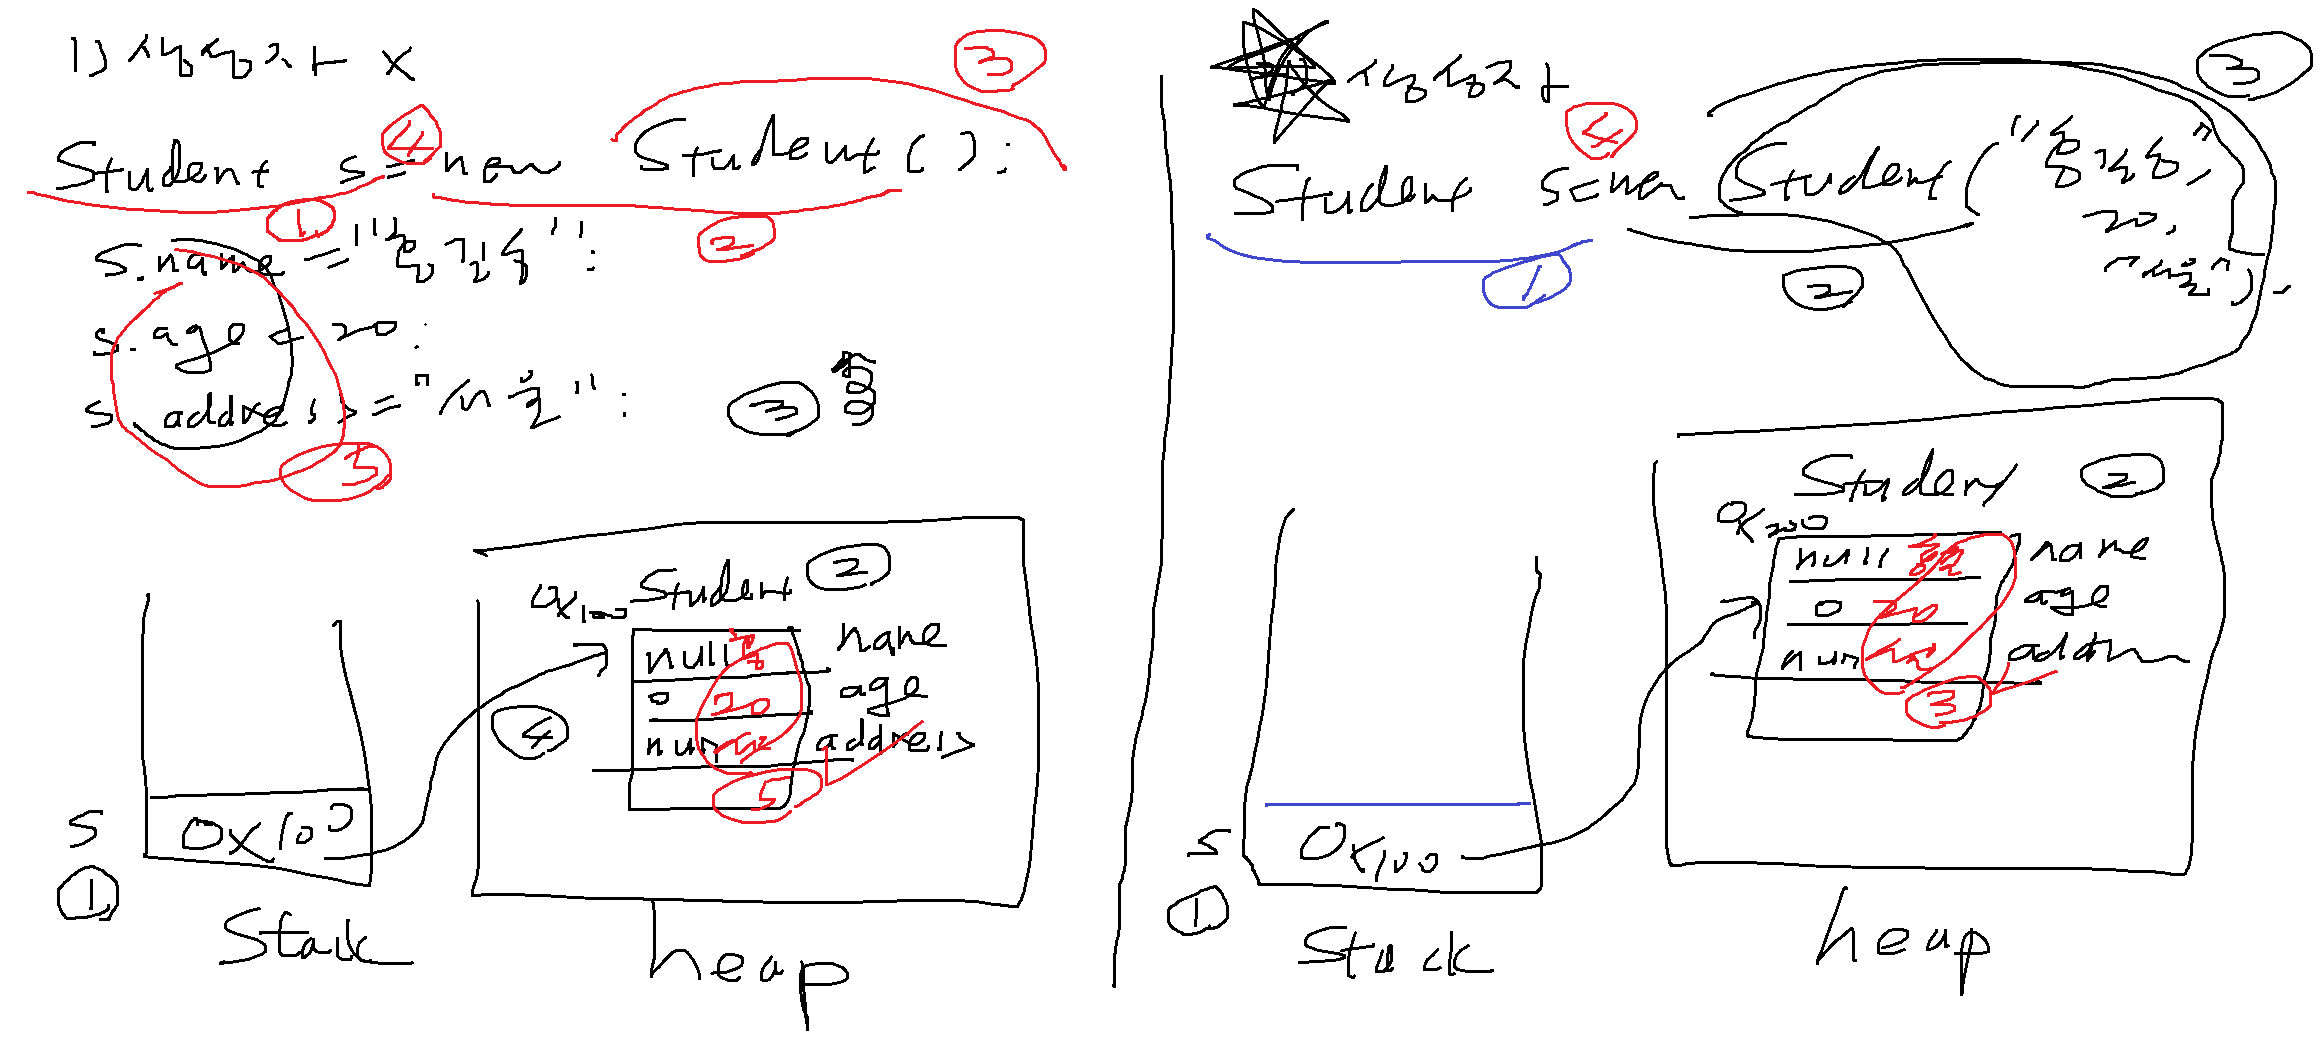 1) 생성자 x
③
④
Student s = new Student( );
①
②
s.name = "홍길동";
s.age = 20;
s. address = "서울";
③
5
Student ②
0x100
null 홍 name
0 20 age
④
null 서울 address
5
s
0x100
①
Stack
heap
생성자
③
④
Student s = new Student( "홍길동",
20,
"서울");
①
②
Student ②
0x200
null 홍길 name
0 20 age
null 서울
③
s
0x100
①
Stack
heap